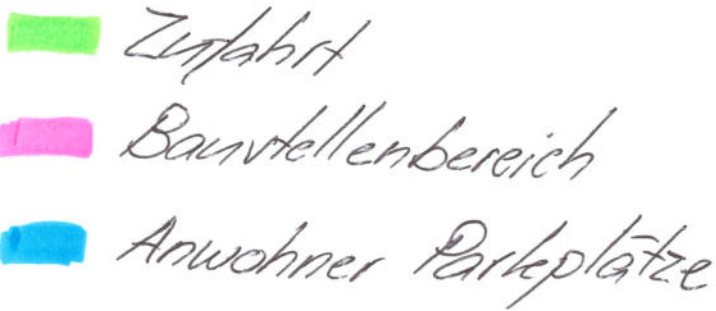 Zufahrt
Baustellenbereich
Anwohner Parkplätze